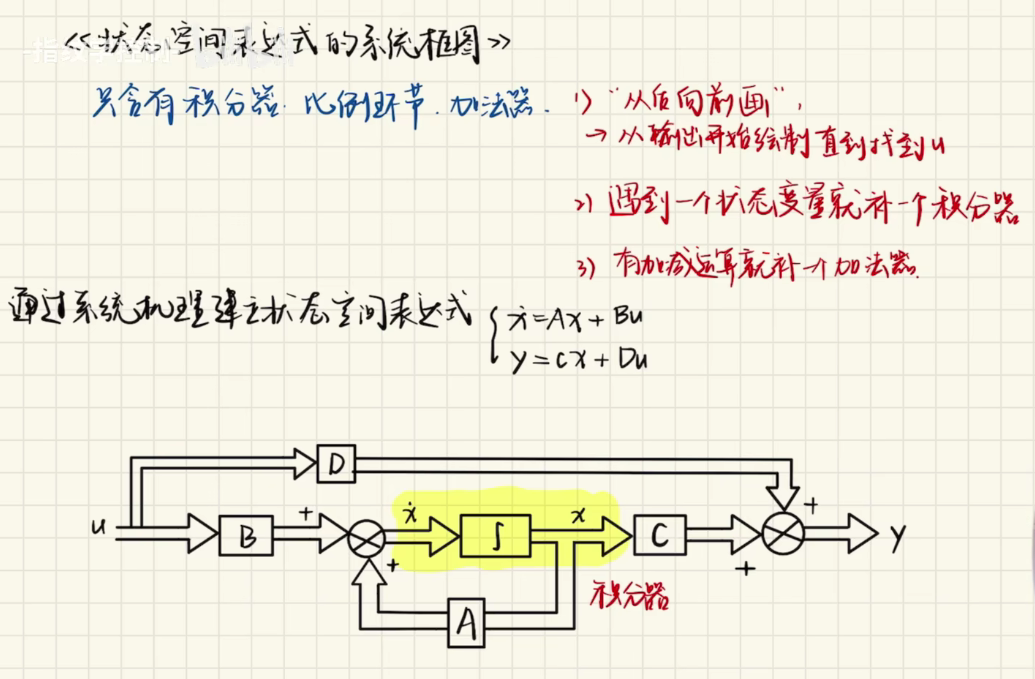 《状态空间表达式的系统框图》
只含有积分器. 比例环节. 加法器.
1) “从后向前画”,
→ 从输出开始绘制直到找到u
2) 遇到一个状态变量就补一个积分器
3) 有加减运算就补一个加法器.
通过系统机理建立状态空间表达式
ẋ=Ax+Bu
y=Cx+Du
D
+
u B + ẋ ∫ x C y
+ +
积分器
A